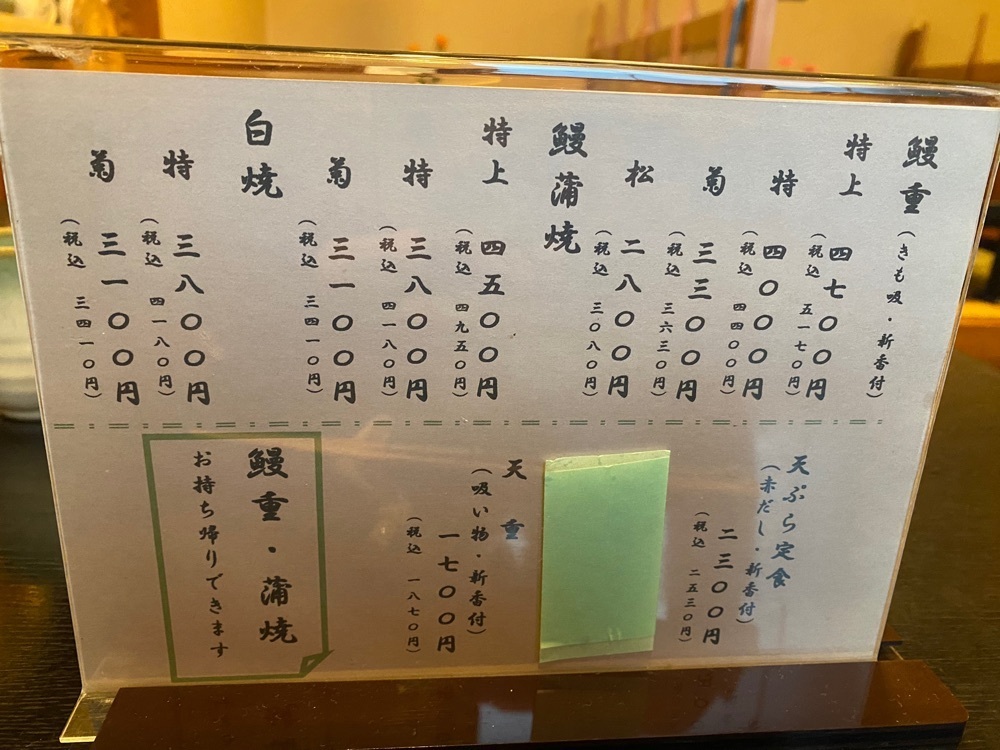 鰻重(きも吸・新香付)
特上 四七〇〇円
(税込 五一七〇円)
特 四〇〇〇円
(税込 四四〇〇円)
菊 三三〇〇円
(税込 三六三〇円)
松 二八〇〇円
(税込 三〇八〇円)
鰻蒲焼
特上 四五〇〇円
(税込 四九五〇円)
特 三八〇〇円
(税込 四一八〇円)
菊 三一〇〇円
(税込 三四一〇円)
白焼
特 三八〇〇円
(税込 四一八〇円)
菊 三一〇〇円
(税込 三四一〇円)
天ぷら定食
(赤だし・新香付)
二三〇〇円
(税込 二五三〇円)
天重
(吸い物・新香付)
一七〇〇円
(税込 一八七〇円)
鰻重・蒲焼
お持ち帰りできます